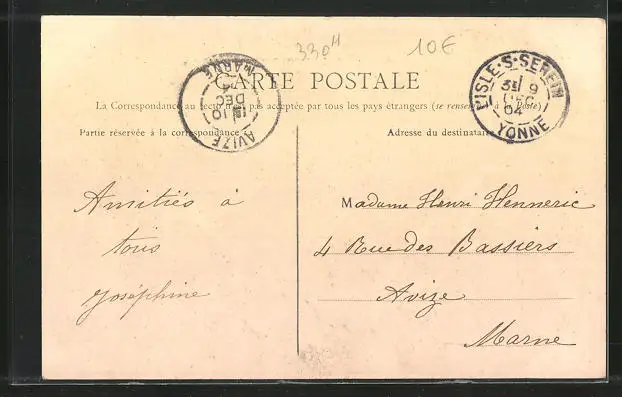 330 4
10€
CARTE POSTALE
La Correspondance au recto n'est pas acceptée par tous les pays étrangers (se renseigner à la Poste)
Partie réservée à la correspondance
Adresse du destinataire
AVIZE
DEC
MARNE
L'ISLE-S-SEREIN
9
04
YONNE
Amitiés à
tous
Joséphine
Madame Henri Henneric
4 Rue des Bassiers
Avize
Marne